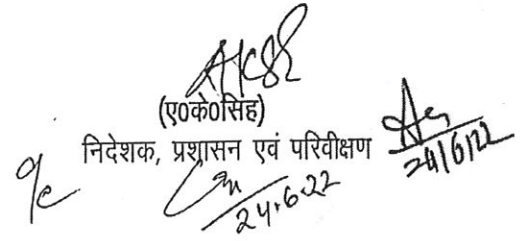 (ए०के०सिंह)
निदेशक, प्रशासन एवं परिवीक्षण
24/6/22
24.6.22